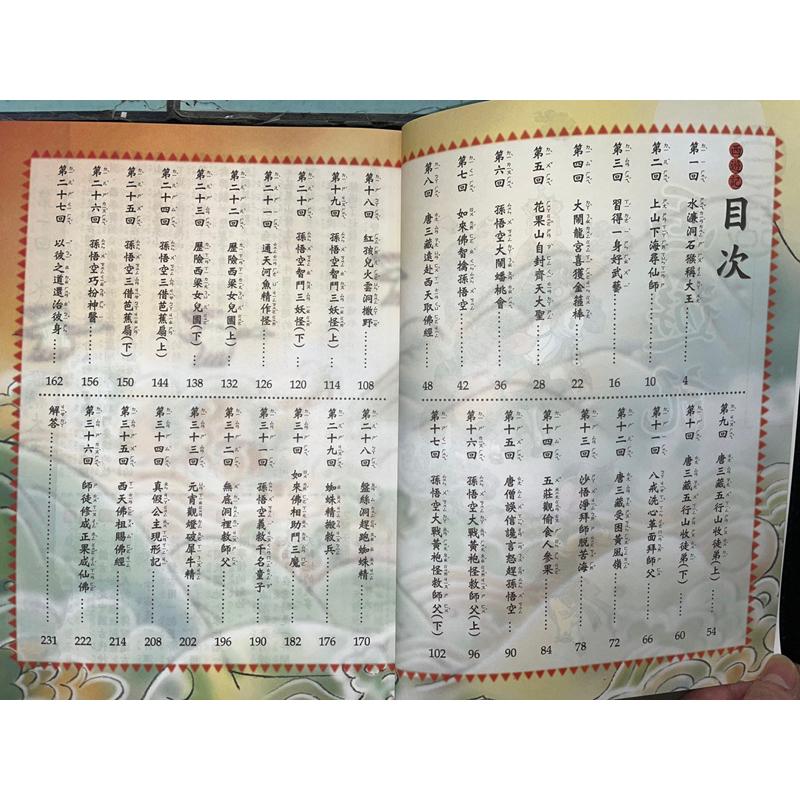 西遊記
目次
第一回 水濂洞石猴稱大王………4
第二回 上山下海尋仙師………10
第三回 習得一身好武藝………16
第四回 大鬧龍宮喜獲金箍棒………22
第五回 花果山自封齊天大聖………28
第六回 孫悟空大鬧蟠桃會………36
第七回 如來佛智擒孫悟空………42
第八回 唐三藏遠赴西天取佛經………48
第九回 唐三藏五行山收徒弟(上)………54
第十回 唐三藏五行山收徒弟(下)………60
第十一回 八戒洗心革面拜師父………66
第十二回 唐三藏受困黃風嶺………72
第十三回 沙悟淨拜師脫苦海………78
第十四回 五莊觀偷食人參果………84
第十五回 唐僧誤信讒言怒趕孫悟空………90
第十六回 孫悟空大戰黃袍怪救師父(上)………96
第十七回 孫悟空大戰黃袍怪救師父(下)………102
第十八回 紅孩兒火雲洞撒野………108
第十九回 孫悟空智鬥三妖怪(上)………114
第二十回 孫悟空智鬥三妖怪(下)………120
第二十一回 通天河魚精作怪………126
第二十二回 歷險西梁女兒國(上)………132
第二十三回 歷險西梁女兒國(下)………138
第二十四回 孫悟空三借芭蕉扇(上)………144
第二十五回 孫悟空三借芭蕉扇(下)………150
第二十六回 孫悟空巧扮神醫………156
第二十七回 以彼之道還治彼身………162
第二十八回 盤絲洞趕跑蜘蛛精………170
第二十九回 蜘蛛精搬救兵………176
第三十回 如來佛相助鬥三魔………182
第三十一回 孫悟空義救千名童子………190
第三十二回 無底洞裡救師父………196
第三十三回 元宵觀燈破犀牛精………202
第三十四回 真假公主現形記………208
第三十五回 西天佛祖賜佛經………214
第三十六回 師徒修成正果成仙佛………222
解答………231